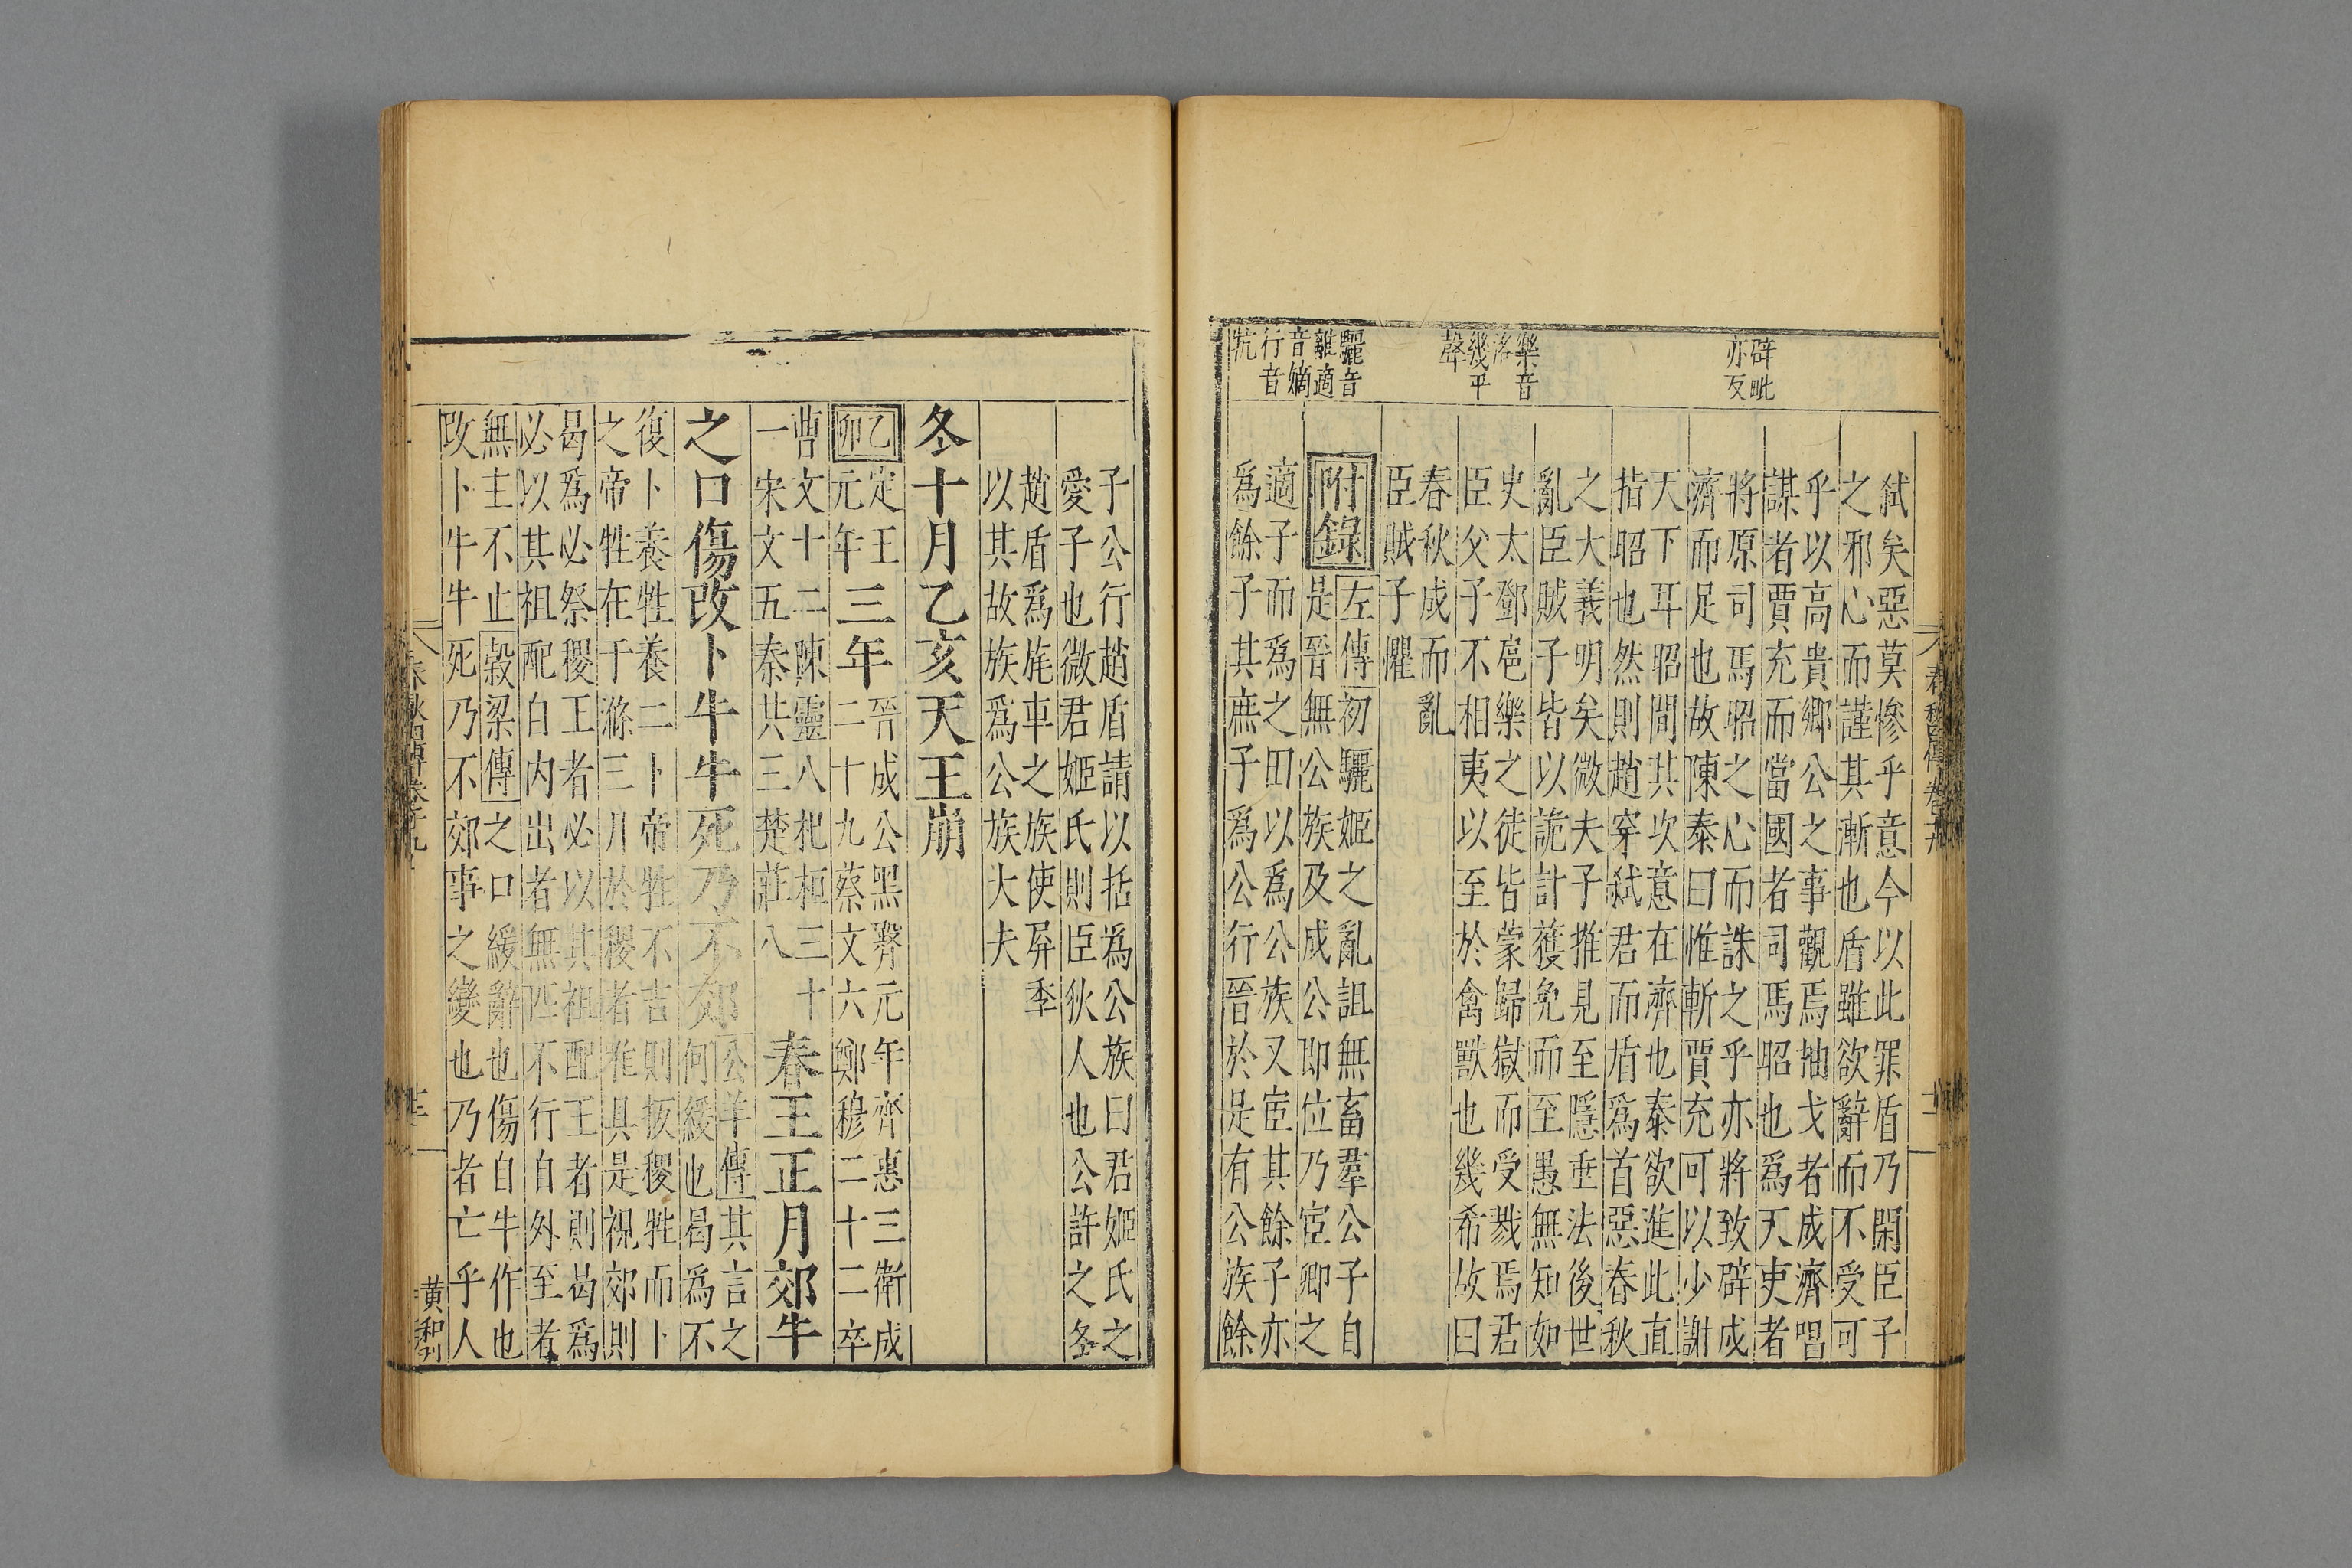 辟毗
亦反
樂音
洛
幾平
聲
驪音
離適
音嫡
行音
杭
弒矣惡莫慘乎意今以此罪盾乃閑臣子
之邪心而謹其漸也盾雖欲辭而不受可
乎以高貴鄉公之事觀焉抽戈者成濟唱
謀者賈充而當國者司馬昭也爲天吏者
將原司馬昭之心而誅之乎亦將致辟成
濟而足也故陳泰曰惟斬賈充可以少謝
天下耳昭問其次意在濟也泰欲進此直
指昭也然則趙穿弒君而盾爲首惡春秋
之大義明矣微夫子推見至隱垂法後世
亂臣賊子皆以詭計獲免而至愚無知如
史太鄧扈樂之徒皆蒙歸獄而受戮焉君
臣父子不相夷以至於禽獸也幾希故曰
春秋成而亂
臣賊子懼
附錄
左傳初驪姬之亂詛無畜羣公子自
是晉無公族及成公卽位乃宦卿之
適子而爲之田以爲公族又宦其餘子亦
爲餘子其庶子爲公行晉於是有公族餘
子公行趙盾請以括爲公族曰君姬氏之
愛子也微君姬氏則臣狄人也公許之冬
趙盾爲旄車之族使屏季
以其故族爲公族大夫
冬十月乙亥天王崩
乙卯
定王
元年
三年
晉成公黑臀元年齊惠三衛成
二十九蔡文六鄭穆二十二卒
曹文十二陳靈八杞桓三十
一宋文五秦共三楚莊八
春王正月郊牛
之口傷改卜牛牛死乃不郊
公羊傳其言之
何緩也曷爲不
復卜養牲養二卜帝牲不吉則扳稷牲而卜
之帝牲在于滌三月於稷者唯具是視郊則
曷爲必祭稷王者必以其祖配王者則曷爲
必以其祖配自內出者無匹不行自外至者
無主不止穀梁傳之口緩辭也傷自牛作也
改卜牛牛死乃不郊事之變也乃者亡乎人